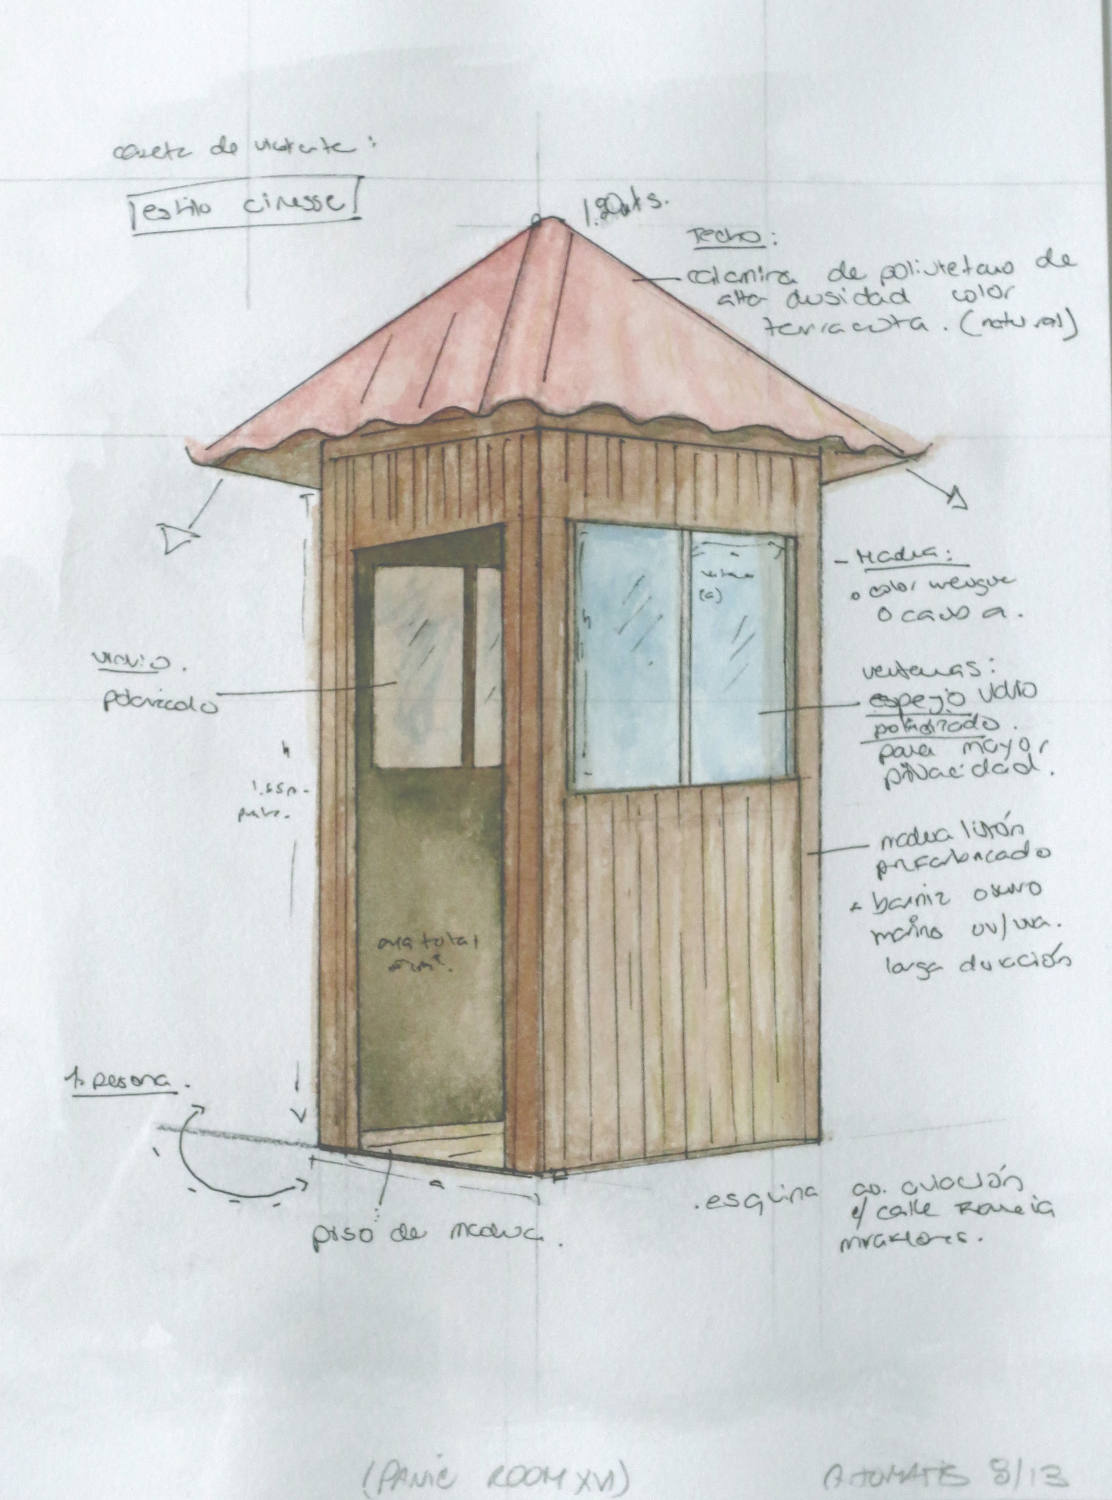 caseta de vigilante:
estilo cinesse
1.20mts.
Techo:
calamina de poliuretano de
alta dusidad color
terracota. (natural)
- Madera:
o color wengue
o caoba.
ventanas:
espejo vidrio
polarizado.
para mayor
privacidad.
ventana
(a)
a
h
vidrio.
polarizado
h
madera listón
prefabricado
barniz oscuro
marino uv/
larga duración
area total
1 persona.
a
piso de madera.
.esquina
av. aviación
c/ calle
miraflores.
(PANIC ROOM XVI)
8/13